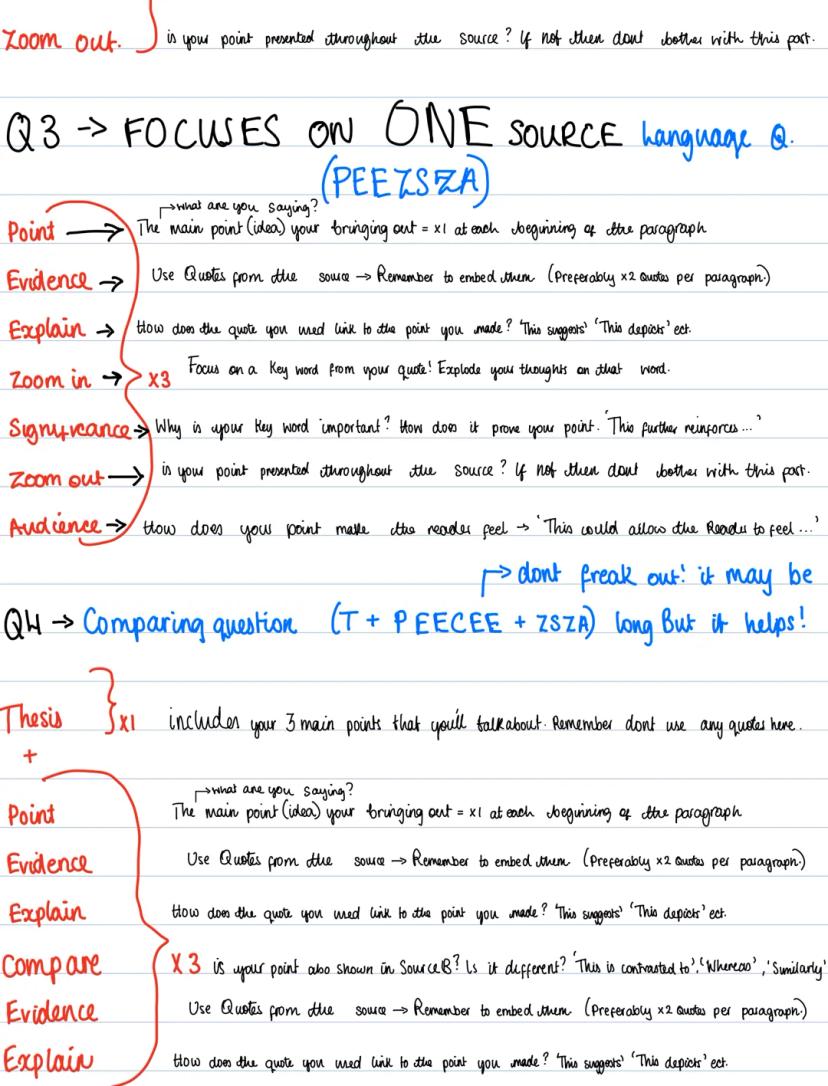 Zoom out. is your point presented throughout the source? If not then dont bother with this part.
Q3 → FOCUSES ON ONE SOURCE Language Q.
(PEEZSZA)
↱what are you saying?
Point → The main point (idea) your bringing out = x1 at each beginning of the paragraph
Evidence → Use Quotes from the source → Remember to embed them (Preferably x2 Quotes per paragraph.)
Explain → How does the quote you used link to the point you made? 'This suggests' 'This depicts' ect.
Zoom in → x3 Focus on a Key word from your quote! Explode your thoughts on that word.
Significance → Why is your Key word important? How does it prove your point. 'This further reinforces...'
Zoom out → is your point presented throughout the source? If not then dont bother with this part.
Audience → How does your point make the reader feel → 'This could allow the Reader to feel...'
↱ dont freak out! it may be
Q4 → Comparing question (T + PEECEE + ZSZA) long But it helps!
Thesis } x1 includes your 3 main points that you'll talk about. Remember dont use any quotes here.
+
↱what are you saying?
Point The main point (idea) your bringing out = x1 at each beginning of the paragraph
Evidence Use Quotes from the source → Remember to embed them (Preferably x2 Quotes per paragraph.)
Explain How does the quote you used link to the point you made? 'This suggests' 'This depicts' ect.
Compare x3 is your point also shown in Source B? Is it different? 'This is contrasted to', 'Whereas', 'Similarly'
Evidence Use Quotes from the source → Remember to embed them (Preferably x2 Quotes per paragraph.)
Explain How does the quote you used link to the point you made? 'This suggests' 'This depicts' ect.